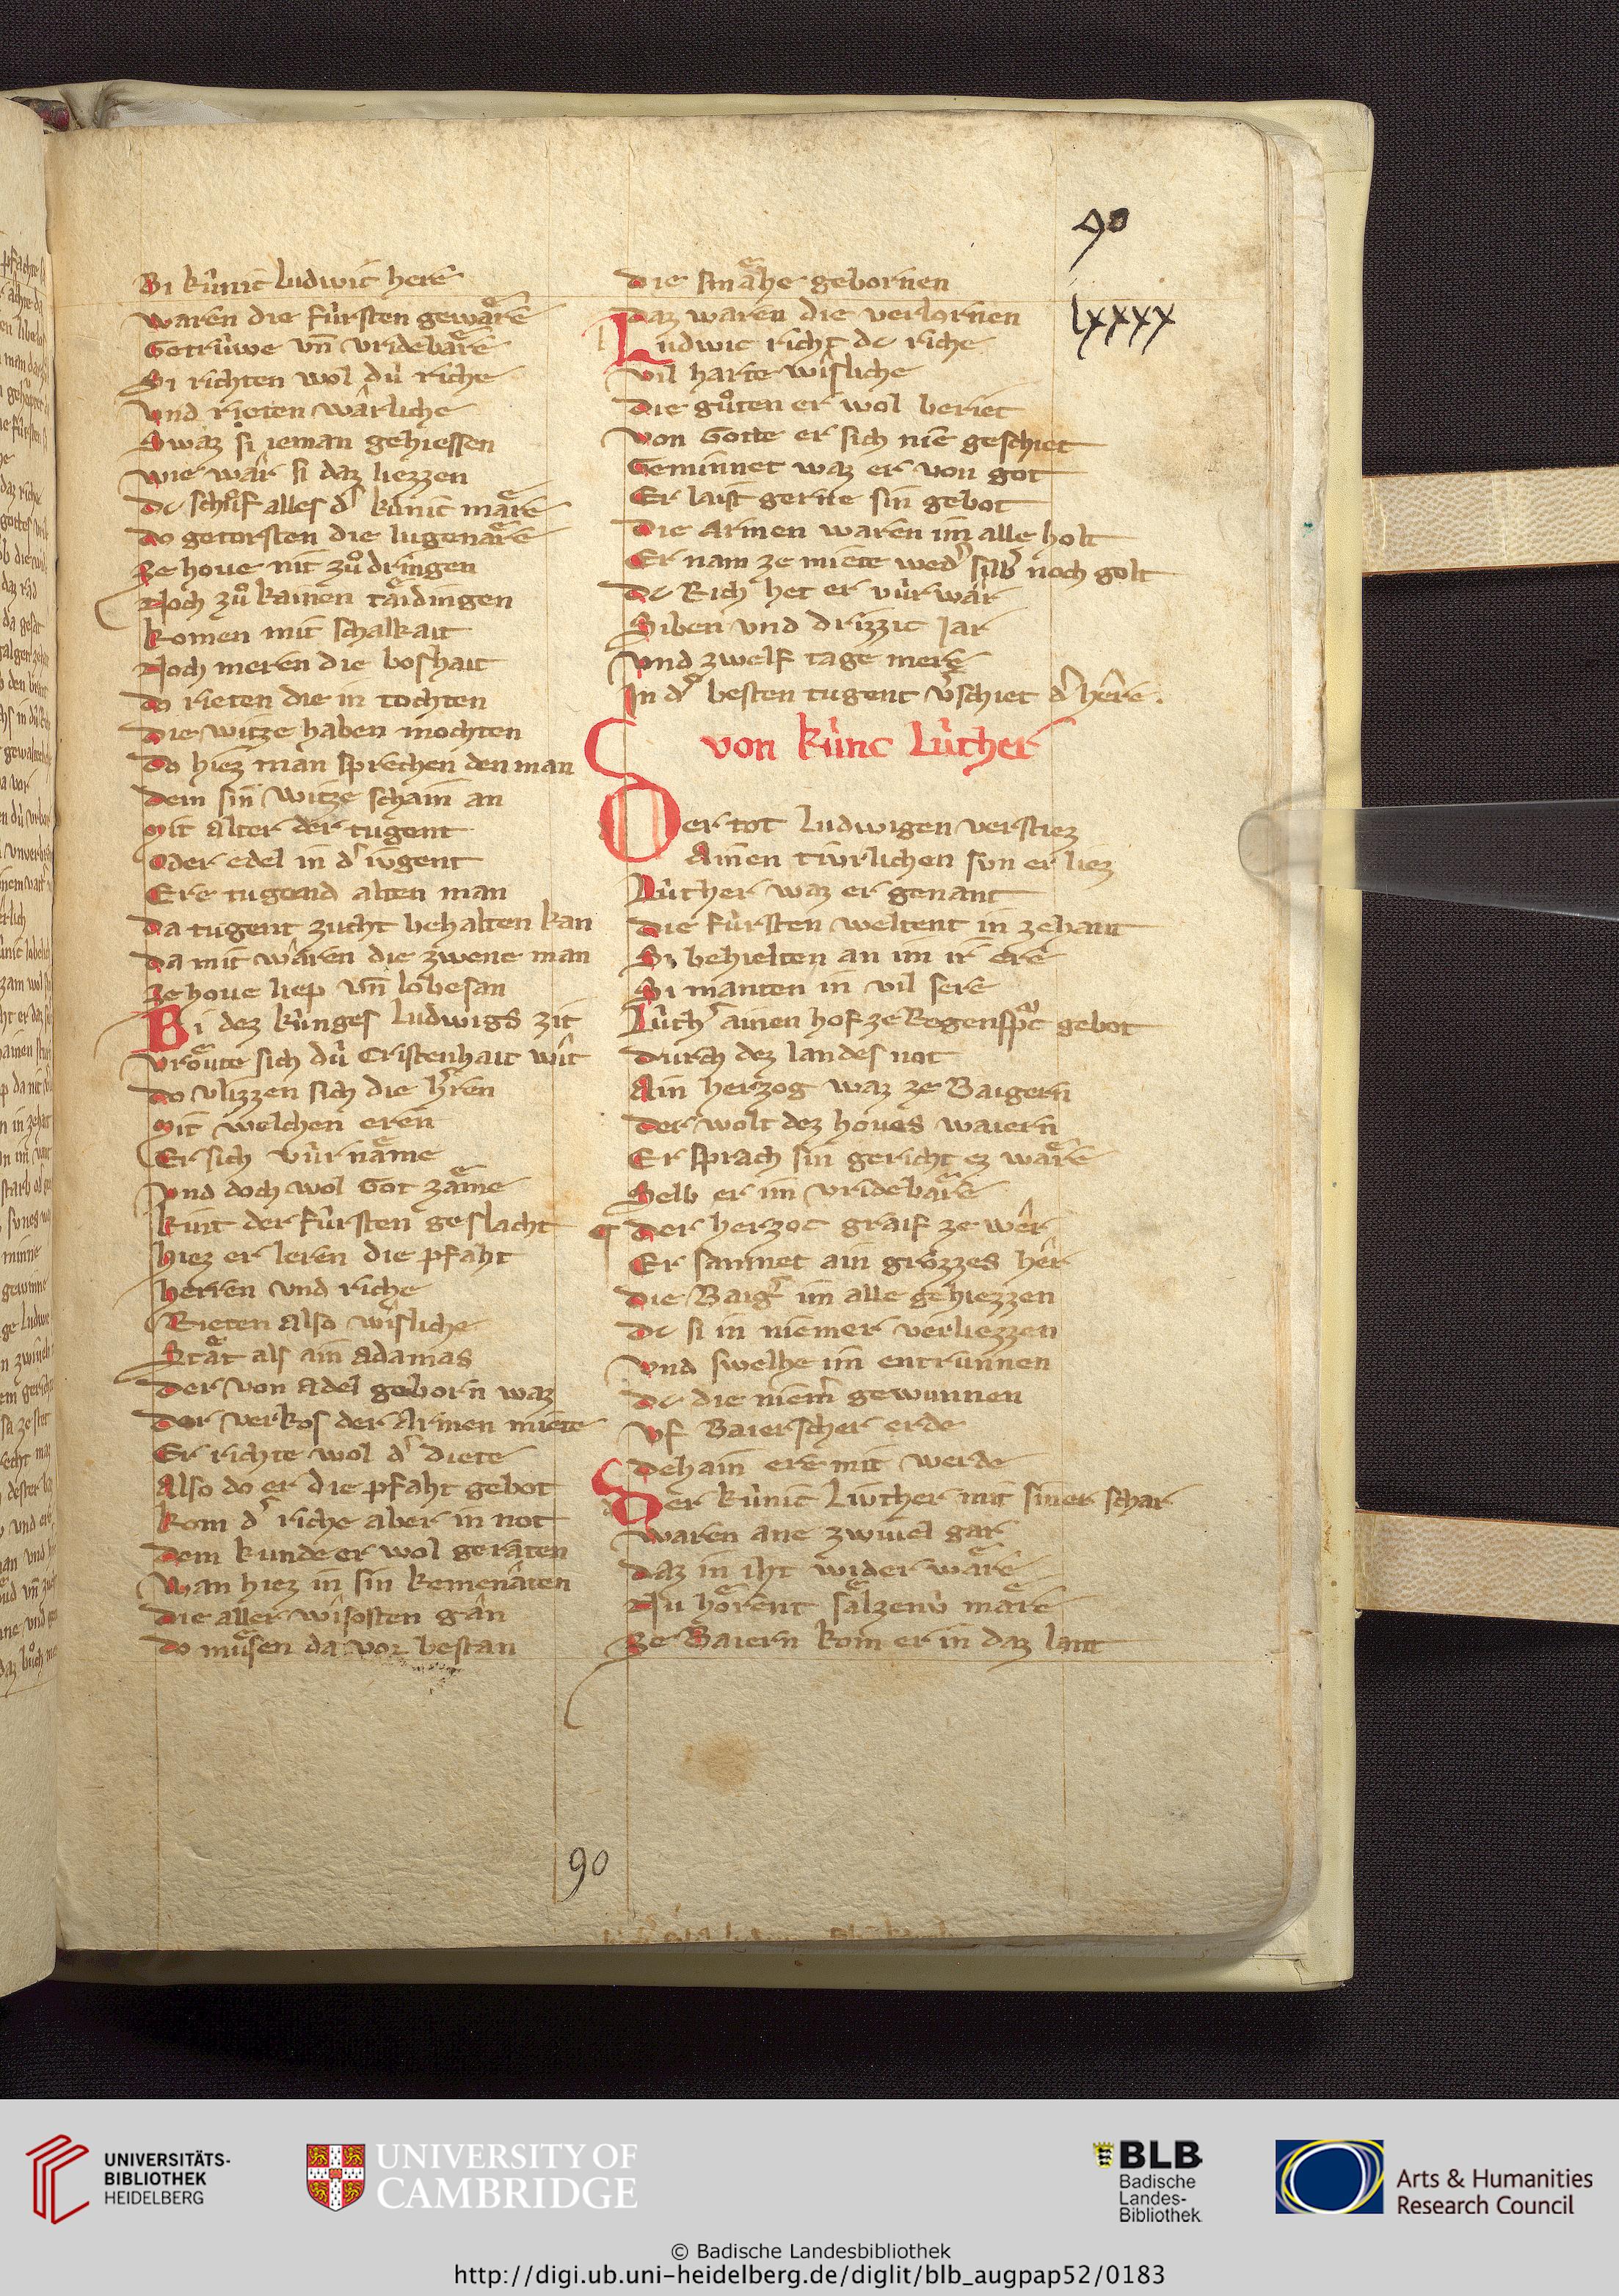 90
lxxxx
Bi kûnic Ludwic here
waren die fûrsten gewaͤre
Getrûwe vn̄ vridebaͤre
Si richten wol dû riche
Vnd rieten wârliche
Swaz si ieman gehiessen
wie wâr si daz liezzen
dc schûf alles dˢ kûnic maͤre
do getorsten die lugenaͤre
Ze houe nit zuͦ dringen
Noch zuͦ kainen taͤidingen
komen mit schalkait
Noch meren die boshait
do rieten die in tochten
die witze haben mochten
do hiez man sprechen den man
dem sin witze schain an
Mit alter der tugent
Oder edel in dˢ iugent
Ere tugend alten man
da tugent zucht behalten kan
da mit wâren die zwene man
Ze houe liep vn̄ lobesan
Bi dez kûnges Ludwigs zit
vroͤute sich dû Cristenhait wît
do vlizzen sich die hˢren
Mit welchen eren
Er sich vûr naͤme
Vnd doch wol Got zaͤme
kint der fûrsten geslacht
hiez er leren die pfaht
herren vnd riche
Rieten also wîsliche
Staͤt als ain adamas
der von adel geborn waz
der verkos der Armen miete
Er richte wol dˢ diete
Also do er die pfaht gebot
kom dˢ riche aber in not
dem kunde er wol gerâten
Man hiez in sin kemenâten
die aller wîsosten gân
do muͤsen da vor bestan
die smaͤhe gebornen
daz waren die verlornen
Ludwic richt dc riche
Vil harte wîsliche
die guͦten er wol beriet
von Gotte er sich nie geschiet
Geminnet waz er von got
Er laist gerne sin gebot
die Armen waren im alle holt
Er nam ze miete wedˢ silbˢ noch golt
dc Rich het er vûr wâr
Siben vnd drizzic Jar
Vnd zwelf tage mere
In dˢ besten tugent vˢschiet dˢ hêre.
von kûnc Lûther
Der tot Ludwigen verstiez
Ainen tiurlichen sun er liez
Lûther waz er genant
die fûrsten weltent in zehant
Si behielten an im ir ere
Si manten in vil sere
Lûthˢ ainen hof ze Regenspᵒc gebot
durch dez landes not
Ain herzog waz ze Baigern
der wolt dez houes waiern
Er sprach sin gericht ez waͤre
Selb er im vridebaͤre
der herzoc graif ze wêr
Er samnet ain grôzzes hêr
die Baigˢ im alle gehiezzen
dc si in niemer verliezzen
Vnd swelhe im entrunnen
dc die niemˢ gewunnen
Vf Baierscher erde
dehain ere mit werde
Der kûnic Luther mit siner schar
waren ane zwiuel gar
daz in iht wider waͤre
Nu hoͤrent saͤlzenû maͤre
Ze Baiern kom er in daz lant
90
UNIVERSITÄTS-
BIBLIOTHEK
HEIDELBERG
UNIVERSITY OF
CAMBRIDGE
BLB
Badische
Landes-
Bibliothek
Arts & Humanities
Research Council
© Badische Landesbibliothek
http://digi.ub.uni-heidelberg.de/diglit/blb_augpap52/0183